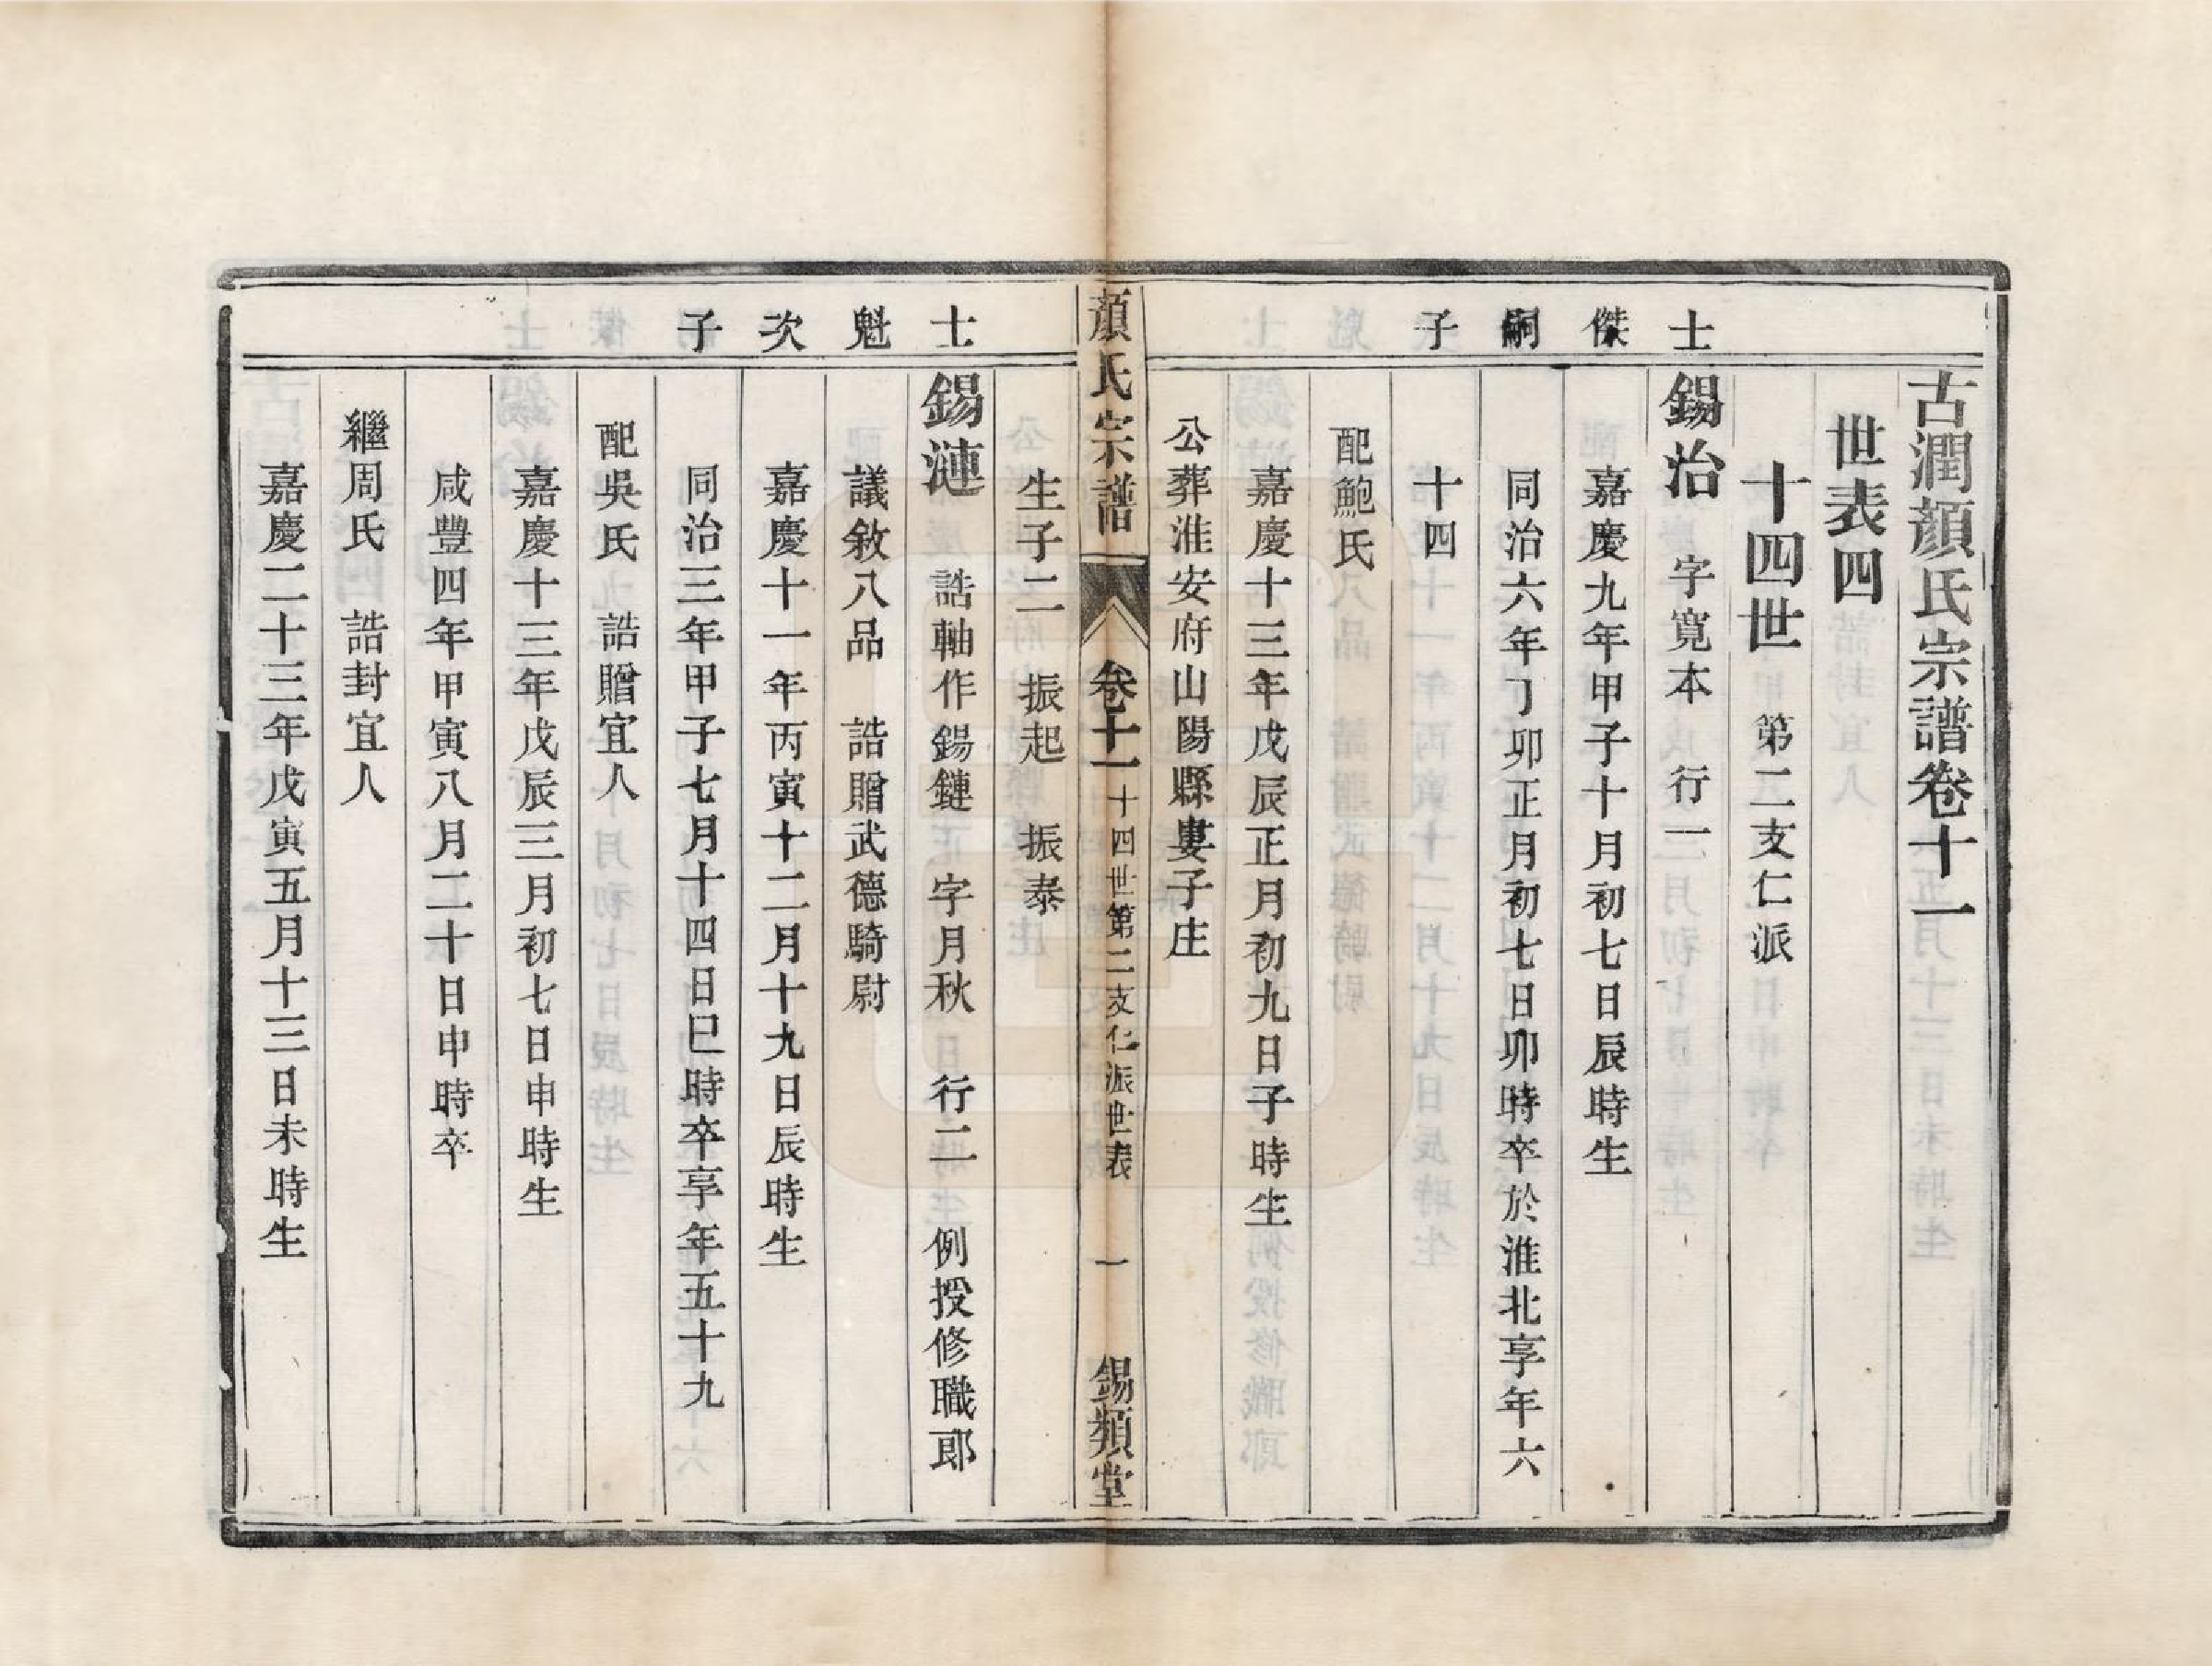 古潤顏氏宗譜卷十一
世表四
十四世　第二支仁派
士傑嗣子
錫治　字寬本　行一
嘉慶九年甲子十月初七日辰時生
同治六年丁卯正月初七日卯時卒於淮北享年六
十四
配鮑氏
嘉慶十三年戊辰正月初九日子時生
公葬淮安府山陽縣婁子庄
顏氏宗譜　卷十一　十四世第二支仁派世表　一　錫類堂
生子二　振起　振泰
士魁次子
錫漣　誥軸作錫鏈　字月秋　行二　例授修職郎
議敘八品　誥贈武德騎尉
嘉慶十一年丙寅十二月十九日辰時生
同治三年甲子七月十四日巳時卒享年五十九
配吳氏　誥贈宜人
嘉慶十三年戊辰三月初七日申時生
咸豐四年甲寅八月二十日申時卒
繼周氏　誥封宜人
嘉慶二十三年戊寅五月十三日未時生